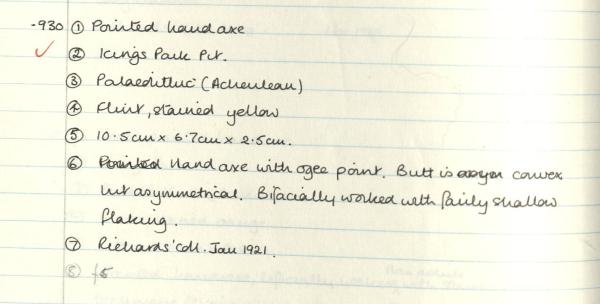 -930 ① Pointed hand axe
✓ ② King's Park Pit.
③ Palaeolithic (Acheulean)
④ Flint, stained yellow
⑤ 10.5cm x 6.7cm x 2.5cm.
⑥ Pointed Hand axe with ogee point. Butt is convex
but asymmetrical. Bifacially worked with fairly shallow
flaking.
⑦ Richards' coll. Jan 1921.
⑧ f5